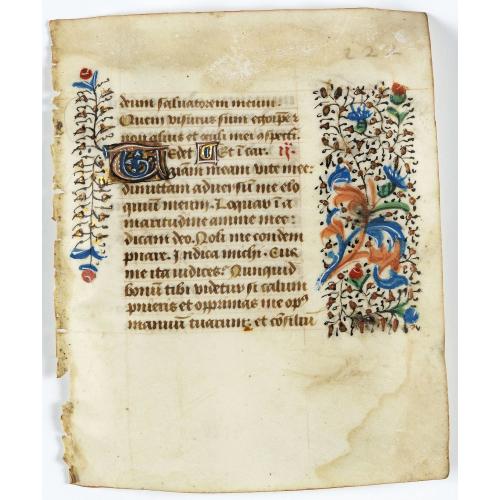 222
deum salvatorem meum.
Quem visurus sum ego ipse et
non alius et oculi mei aspecturi
Tedet Et in car. ij.
aniam meam vite mee
dimittam adversum me elo
quium meum. Loquar in a
maritudine anime mee
dicam deo. Noli me condem
pnare. Indica michi. Cur
me ita iudices. Nunquid
bonum tibi videtur si calum
pnieris et opprimas me opus
manuum tuarum, et consilium